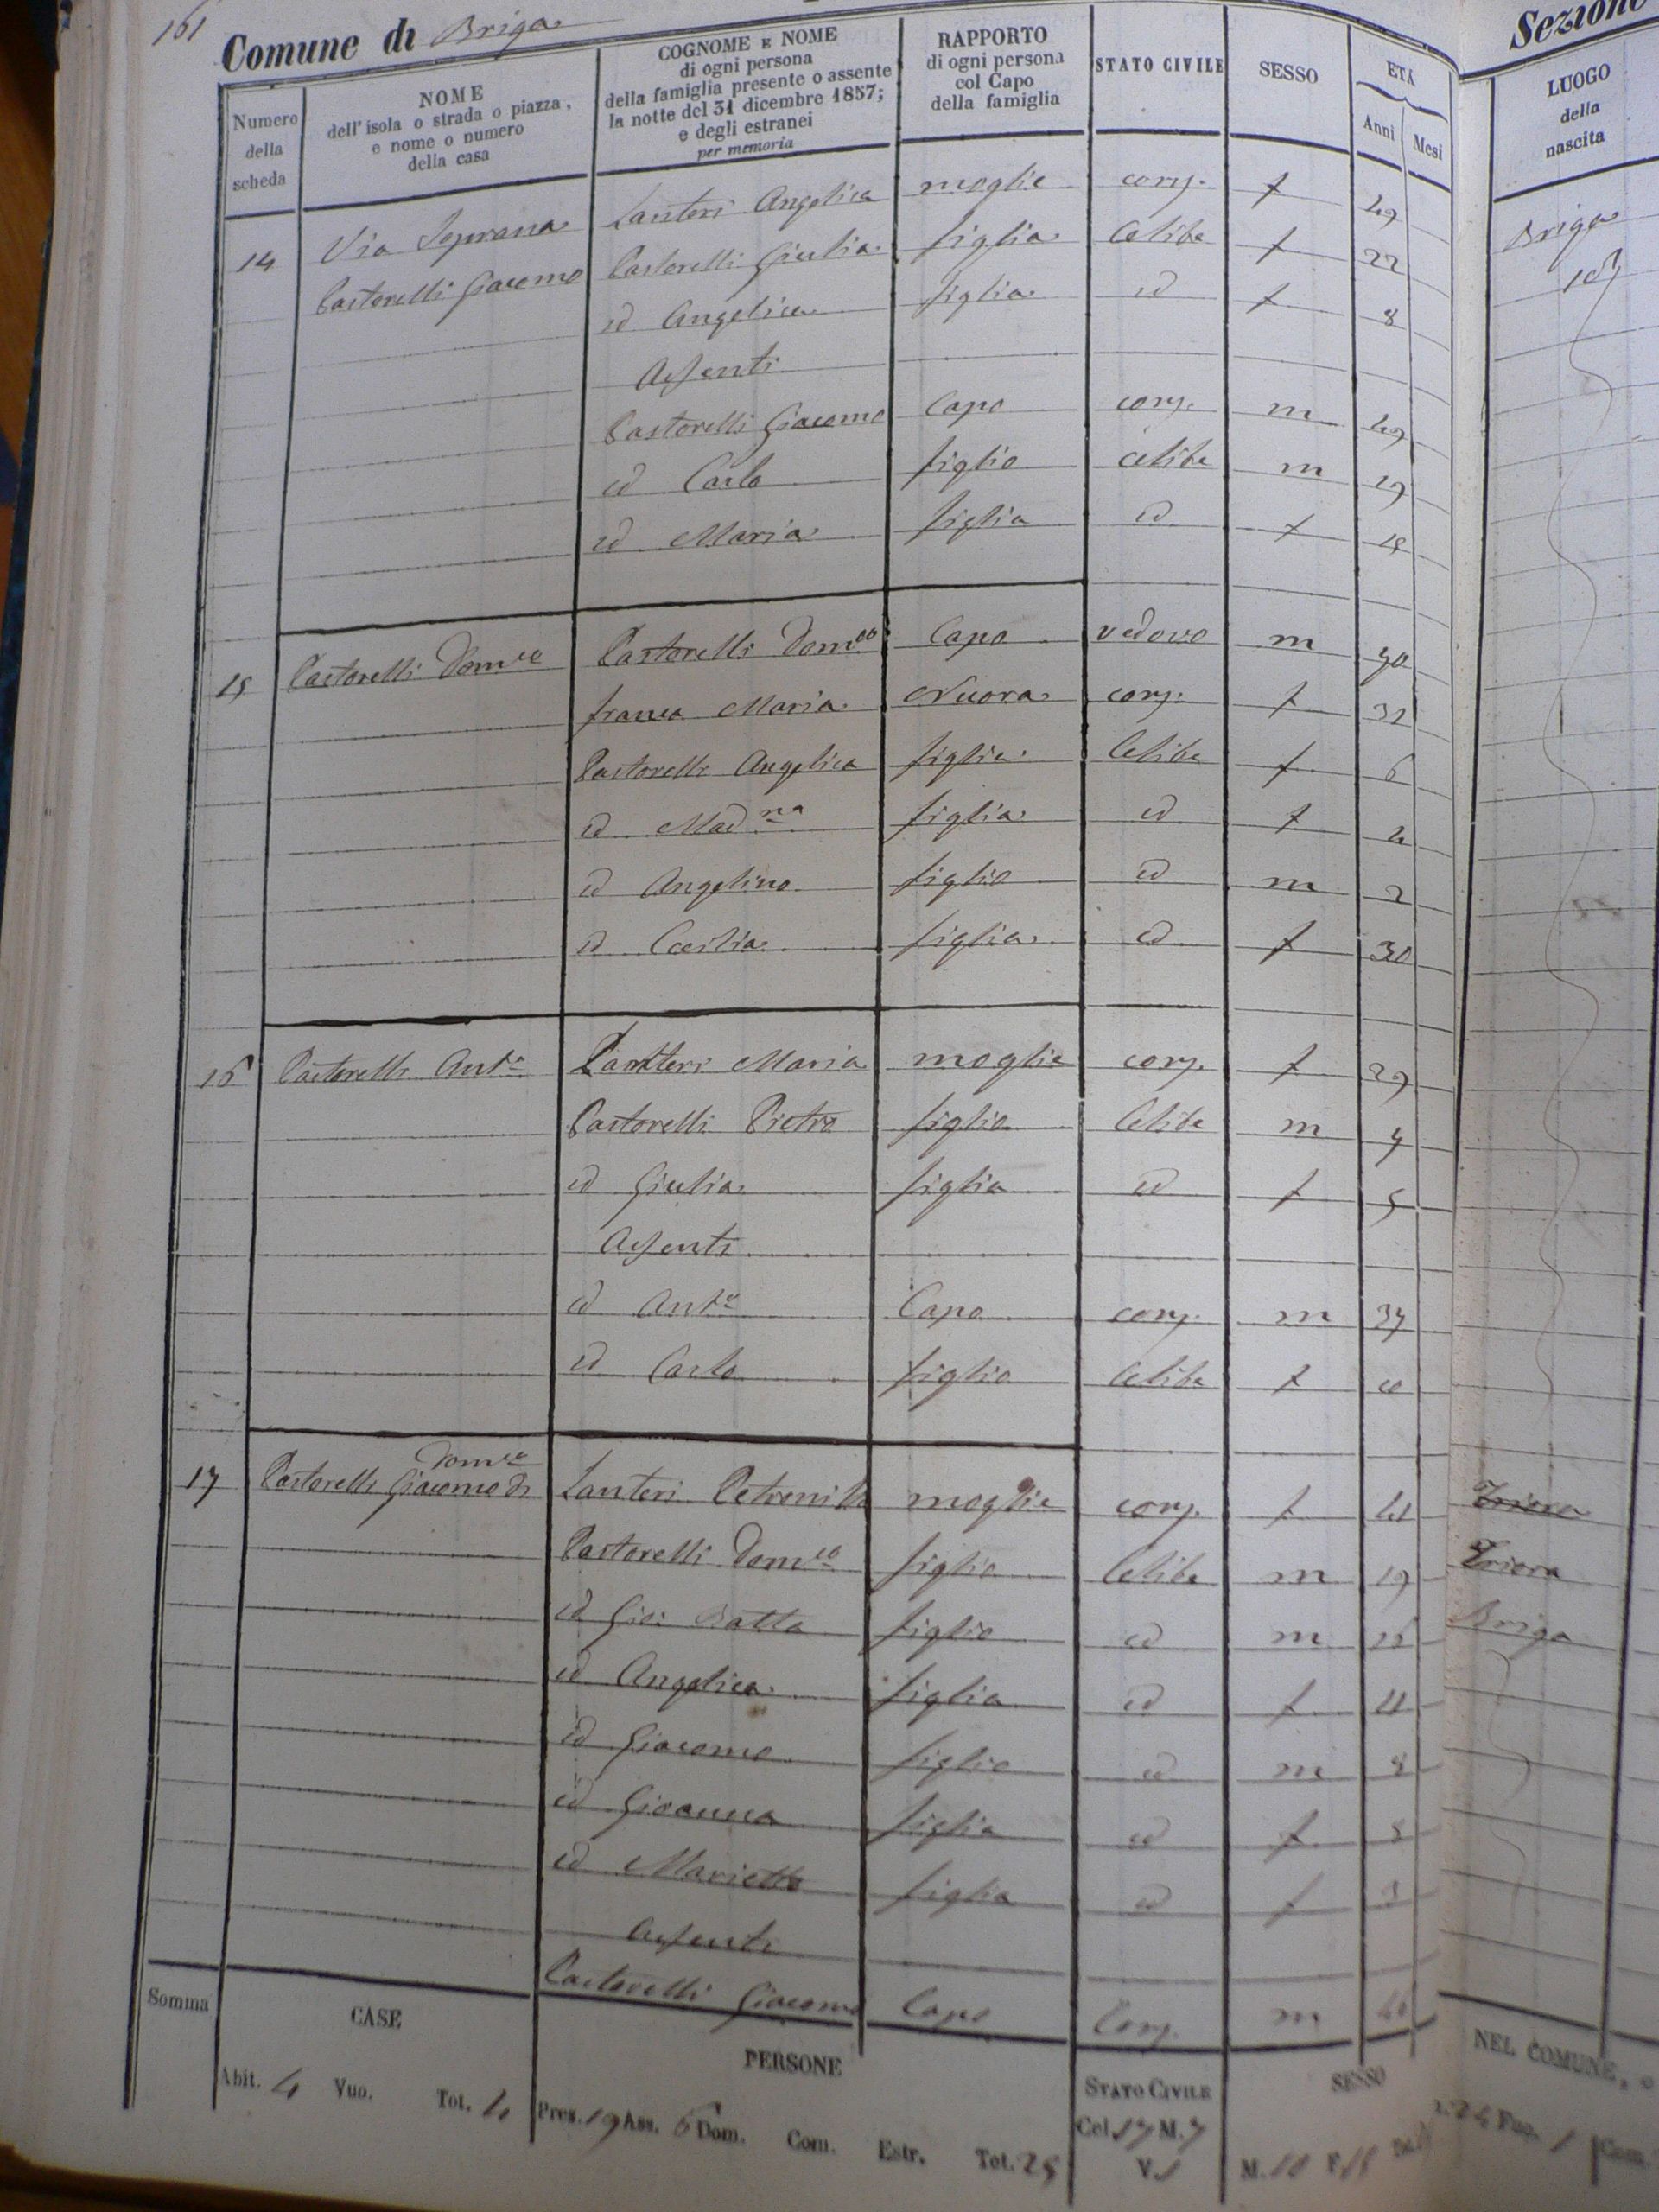 161 Comune di Briga
Sezione
Numero della scheda
NOME dell'isola o strada o piazza, e nome o numero della casa
COGNOME E NOME di ogni persona della famiglia presente o assente la notte del 31 dicembre 1857; e degli estranei per memoria
RAPPORTO di ogni persona col Capo della famiglia
STATO CIVILE
SESSO
ETÁ
Anni Mesi
LUOGO della nascita
14 Via Soprana Lanteri Angelica moglie conj. f 49 Briga
Pastorelli Giacomo Pastorelli Giulia figlia Celibe f 22 id
id Angelica figlia id f 8
Assenti
Pastorelli Giacomo Capo conj. m 49
id Carlo figlio celibe m 19
id Maria figlia id f
15 Pastorelli Domco Pastorelli Domco Capo vedovo m 70
franca Maria Nuora conj. f 32
Pastorelli Angelica figlia Celibe f 6
id Madna figlia id f 4
id Angelino figlio id m 2
id Cecilia figlia id f 30
16 Pastorelli Anto Lantteri Maria moglie conj. f 29
Pastorelli Pietro figlio Celibe m 7
id Giulia figlia id f 5
Assenti
id Anto Capo conj. m 37
id Carlo figlio Celibe f 10
Domco
17 Pastorelli Giacomo di Lanteri Petronilla moglie conj. f 41 Triora
Pastorelli Domco figlio Celibe m 19 Triora
id Gio: Batta figlio id m 16 Briga
id Angelica figlia id f 11
id Giacomo figlio id m 8
id Gioanna figlia id f 5
id Marietta figlia id f 3
Assenti
Pastorelli Giacomo Capo Conj. m 46
Somma CASE PERSONE STATO CIVILE SESSO NEL COMUNE,
Abit. 4 Vuo. Tot. 4 Pres. 19 Ass. 6 Dom. Com. Estr. Tot. 25 Cel 17 M. 7 V. 1 M. 10 F. 15 24 Fuo. 1 Com.